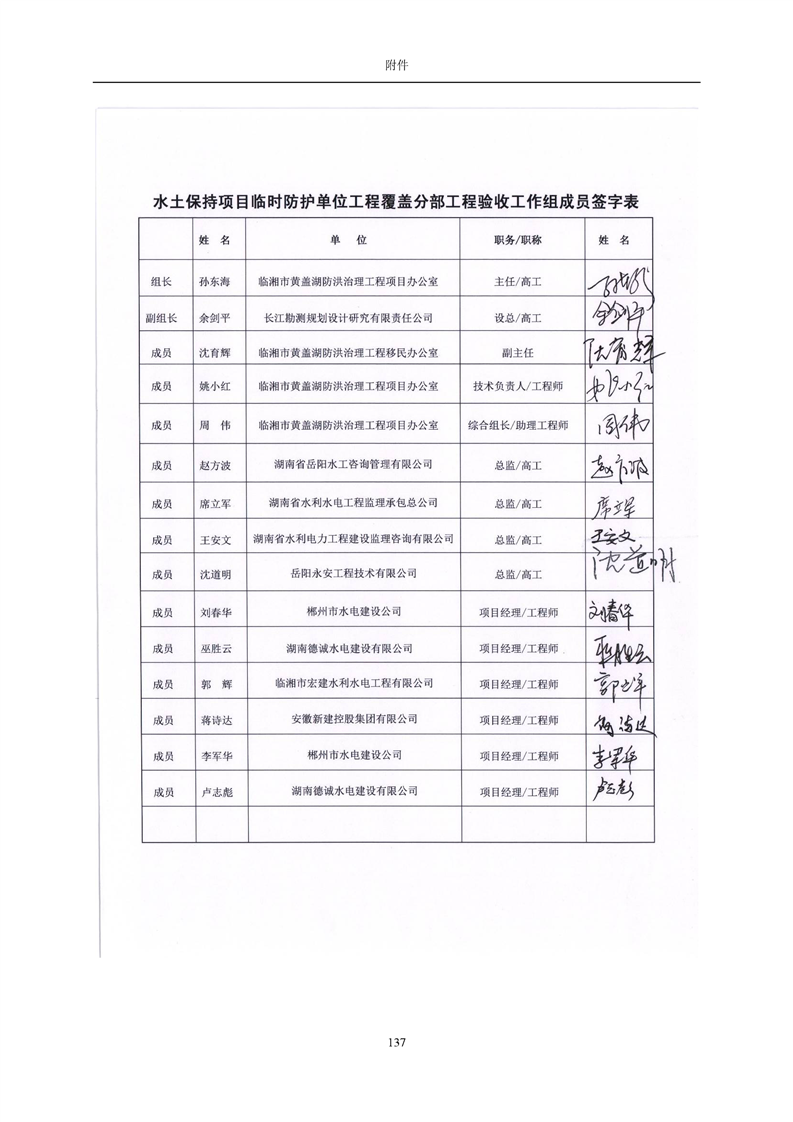 附件
水土保持项目临时防护单位工程覆盖分部工程验收工作组成员签字表
姓 名 单 位 职务/职称 姓 名
组长 孙东海 临湘市黄盖湖防洪治理工程项目办公室 主任/高工
副组长 余剑平 长江勘测规划设计研究有限责任公司 设总/高工 余剑平
成员 沈育辉 临湘市黄盖湖防洪治理工程移民办公室 副主任 沈育辉
成员 姚小红 临湘市黄盖湖防洪治理工程项目办公室 技术负责人/工程师 姚小红
成员 周 伟 临湘市黄盖湖防洪治理工程项目办公室 综合组长/助理工程师 周伟
成员 赵方波 湖南省岳阳水工咨询管理有限公司 总监/高工 赵方波
成员 席立军 湖南省水利水电工程监理承包总公司 总监/高工 席立军
成员 王安文 湖南省水利电力工程建设监理咨询有限公司 总监/高工 王安文
成员 沈道明 岳阳永安工程技术有限公司 总监/高工 沈道明
成员 刘春华 郴州市水电建设公司 项目经理/工程师 刘春华
成员 巫胜云 湖南德诚水电建设有限公司 项目经理/工程师 巫胜云
成员 郭 辉 临湘市宏建水利水电工程有限公司 项目经理/工程师
成员 蒋诗达 安徽新建控股集团有限公司 项目经理/工程师
成员 李军华 郴州市水电建设公司 项目经理/工程师 李军华
成员 卢志彪 湖南德诚水电建设有限公司 项目经理/工程师 卢志彪
137